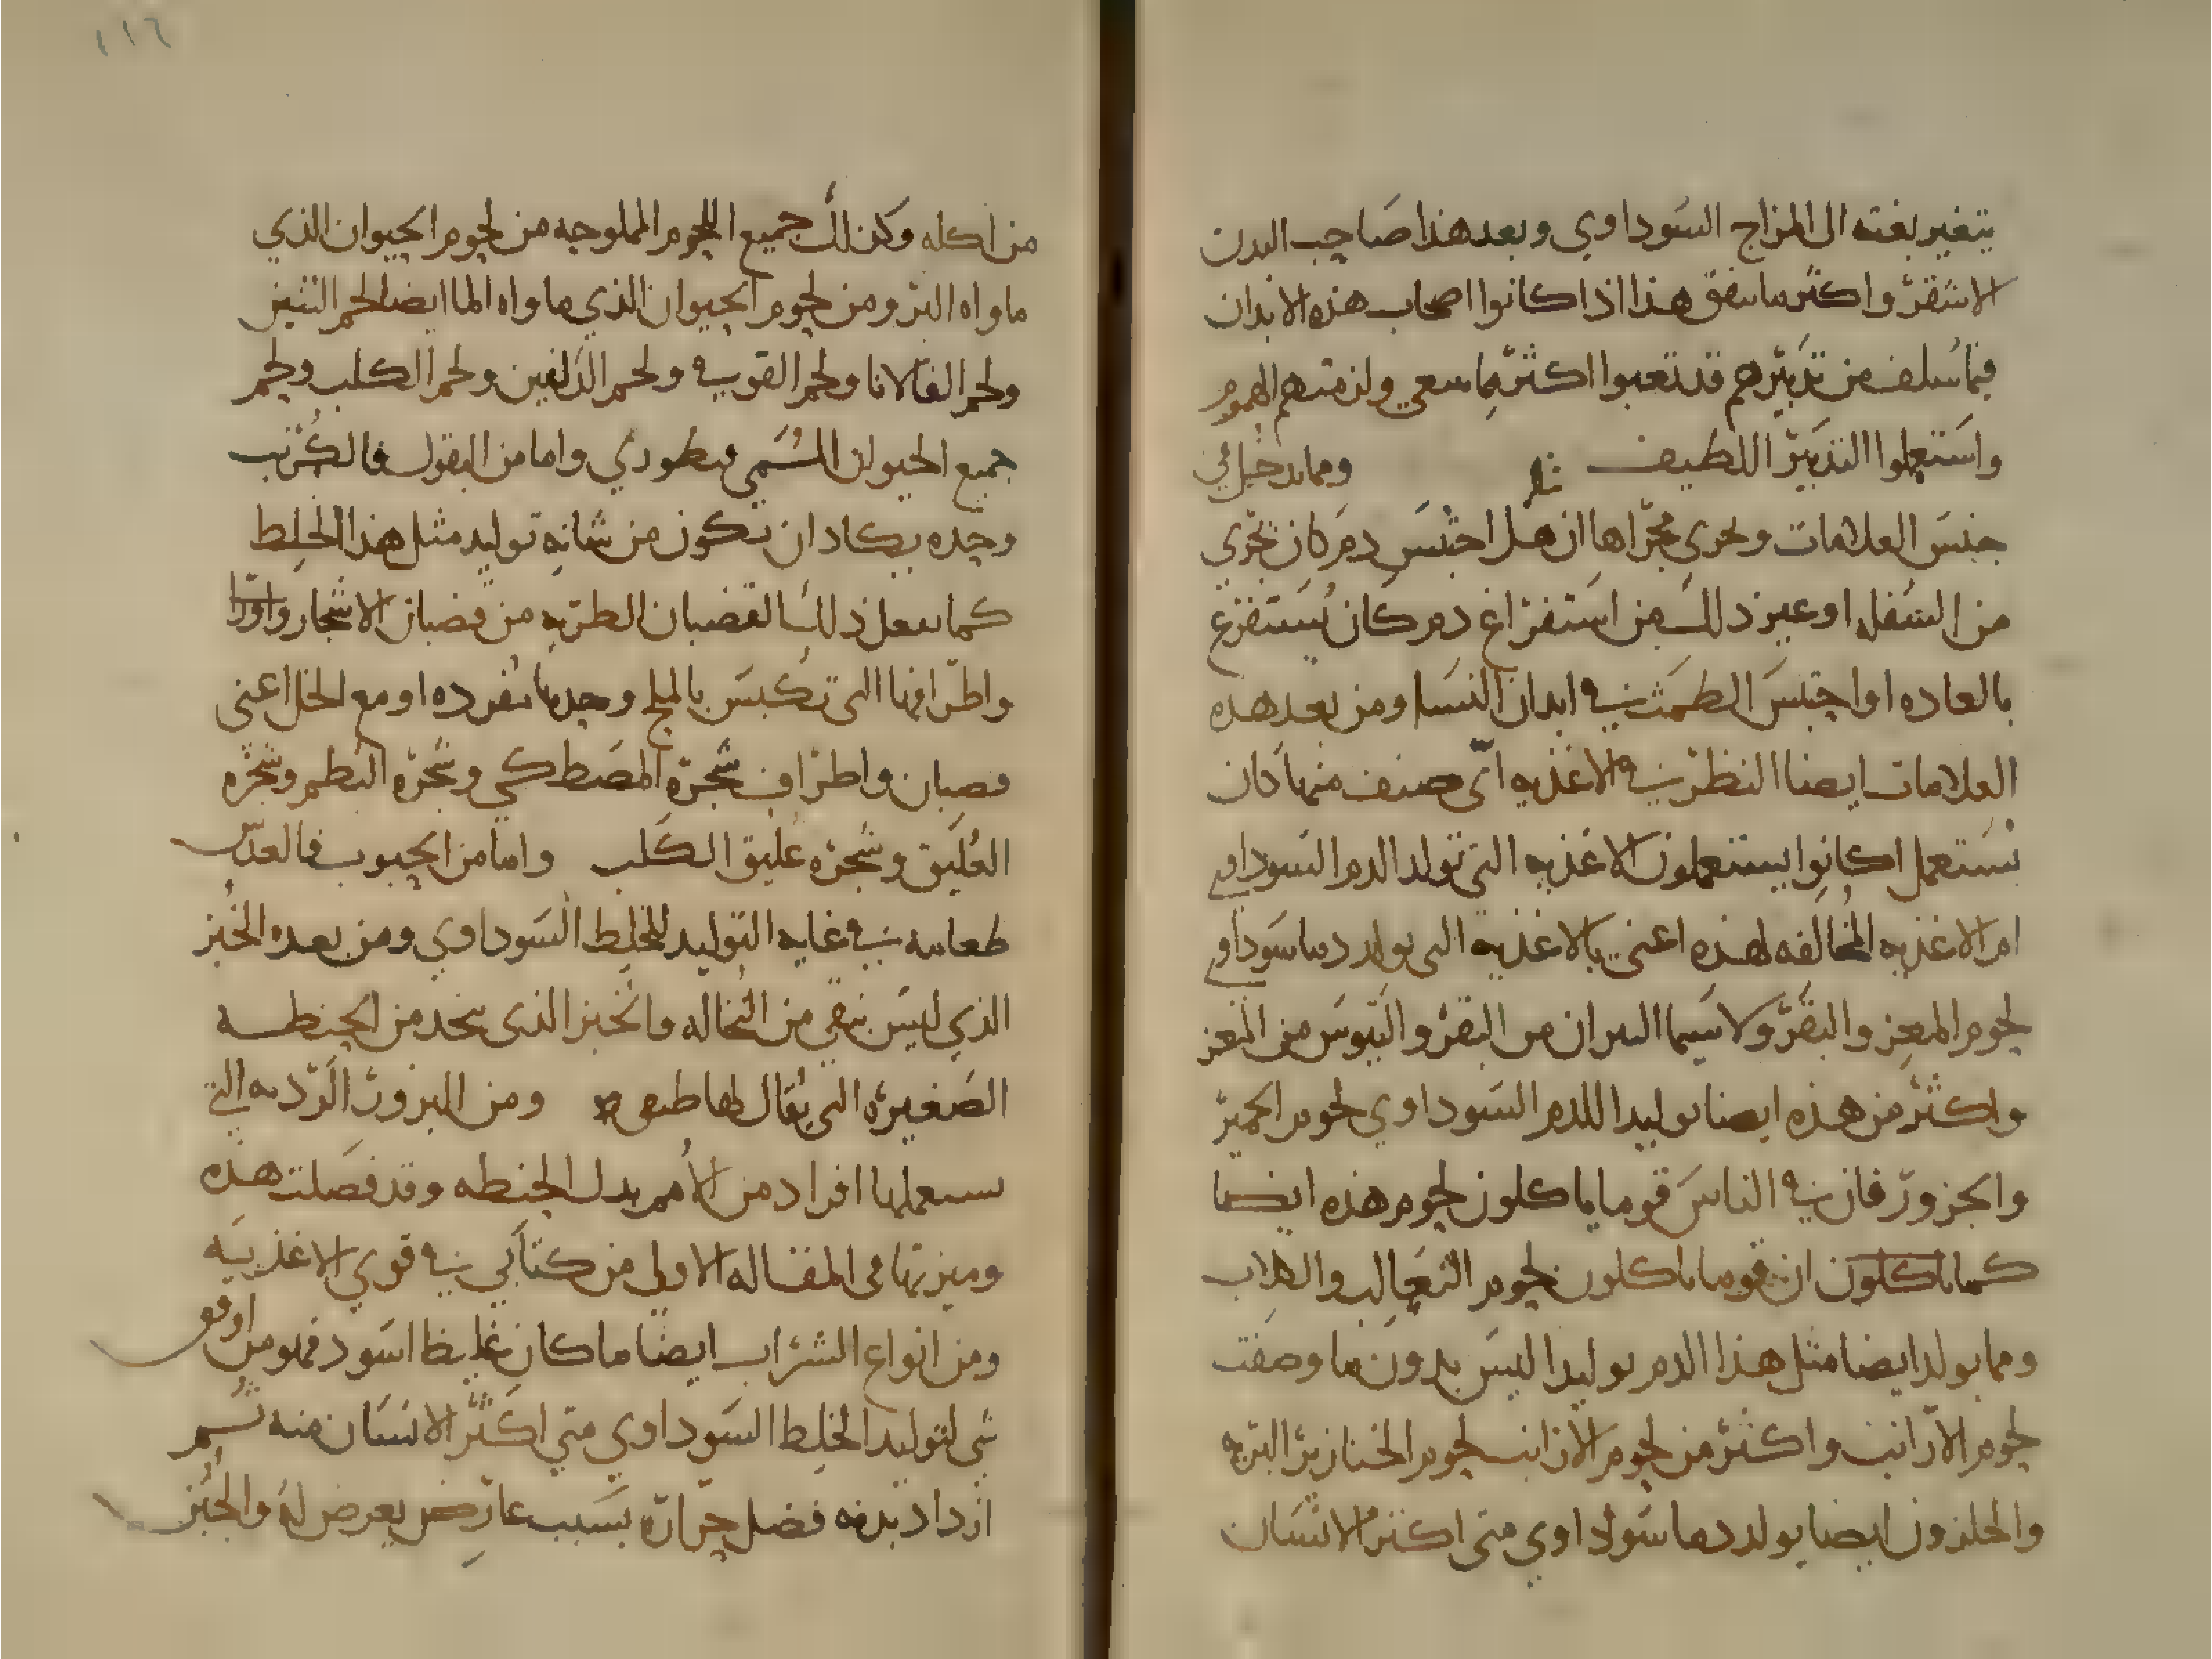 يتغير بغته الى المزاج السوداوي وبعد هذا صاحب البدن
الاشقر واكثر ما يتفق هذا اذا كانوا اصحاب هذه الابدان
فيما سلف من تدبيرهم قد تعبوا اكثر مما ينبغي ولزمتهم الهموم
واستعملوا التدبير اللطيف ومما يدخل في
جنس العلامات ويجري مجراها ان هل احتبس دم كان يجري
من السفله او غير ذلك من استفراغ دم كان يستفرغ
بالعاده او احتبس الطمث في ابدان النسا ومن بعد هذه
العلامات ايضا النظر في الاغذيه اي صنف منها كان
يستعمل اكانوا يستعملون الاغذيه التي تولد الدم السوداوي
ام الاغذيه المخالفه لهذه اعني بالاغذيه التي تولد دما سوداوي
لحوم المعز والبقر ولا سيما الثيران من البقر والتيوس من المعز
واكثر من هذه ايضا توليدا للدم السوداوي لحوم الحمير
والجزور فان في الناس قوما ياكلون لحوم هذه ايضا
كما ياكلون ان قوما ياكلون لحوم الثعالب والكلاب
ومما يولد ايضا مثل هذا الدم توليدا ليس بدون ما وصفت
لحوم الارانب واكثر من لحوم الارانب لحوم الخنازير البريه
والحلزون ايضا يولد دما سوداوي متى اكثر الانسان
١١٦
من اكله وكذلك جميع اللحوم المملوحه من لحوم الحيوان الذي
ماواه البر ومن لحوم الحيوان الذي ماواه الما ايضا لحم التنين
ولحم الفالانا ولحم القوي ولحم الدلفين ولحم الكلب ولحم
جميع الحيوان المسمى قيطوري واما من البقول فالكرنب
وحده يكاد ان يكون من شانه توليد مثل هذا الخلط
كما يفعل ذلك القضبان الطريه من قضبان الاشجار واورا
واطرافها التي تكبس بالملح وحدها مفرده او مع الخل اعني
قضبان واطراف شجره المصطكي وشجره البطم وشجره
العليق وشجره عليق الكلب واما من الحبوب فالعدس
طعامه في غايه التوليد للخلط السوداوي ومن بعده الخبز
الذي ليس بنقي من النخاله والخبز الذي يتخذ من الحنطه
الصغيره التي يقال لها ومن البزور الرديه التي
يستعملها افراد من الامم بدل الحنطه وقد فصلت هذه
وميزتها في المقاله الاولى من كتابي في قوي الاغذيه
ومن انواع الشراب ايضا ما كان غليظا اسود فهو من اوفق
شي لتوليد الخلط السوداوي متى اكثر الانسان منه ثم
ازداد بدنه فضل حراره بسبب عارض يعرض له والجبن